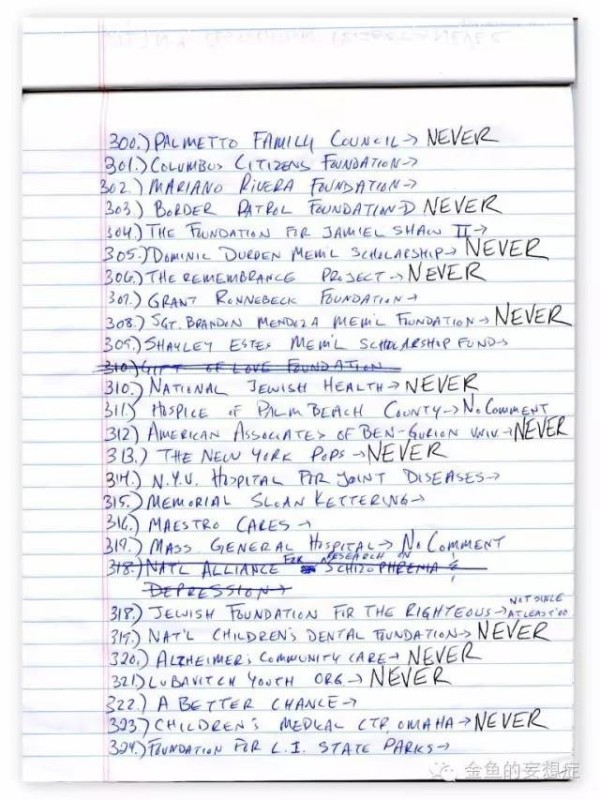 300.) PALMETTO FAMILY COUNCIL → NEVER
301.) COLUMBUS CITIZENS FOUNDATION →
302.) MARIANO RIVERA FOUNDATION →
303.) BORDER PATROL FOUNDATION → NEVER
304.) THE FOUNDATION FOR JAMIEL SHAW II →
305.) DOMINIC DURDEN MEM'L SCHOLARSHIP → NEVER
306.) THE REMEMBRANCE PROJECT → NEVER
307.) GRANT RONNEBECK FOUNDATION →
308.) SGT. BRANDON MENDOZA MEM'L FOUNDATION → NEVER
309.) SHAYLEY ESTES MEM'L SCHOLARSHIP FUND →
310.) GIFT OF LOVE FOUNDATION
310.) NATIONAL JEWISH HEALTH → NEVER
311.) HOSPICE OF PALM BEACH COUNTY → NO COMMENT
312.) AMERICAN ASSOCIATES OF BEN-GURION UNIV. → NEVER
313.) THE NEW YORK POPS → NEVER
314.) N.Y.U. HOSPITAL FOR JOINT DISEASES →
315.) MEMORIAL SLOAN KETTERING →
316.) MAESTRO CARES →
317.) MASS GENERAL HOSPITAL → NO COMMENT
318.) NAT'L ALLIANCE FOR RESEARCH ON SCHIZOPHRENIA &
DEPRESSION →
318.) JEWISH FOUNDATION FOR THE RIGHTEOUS → NOT SINCE AT LEAST '00
319.) NAT'L CHILDREN'S DENTAL FOUNDATION → NEVER
320.) ALZHEIMER'S COMMUNITY CARE → NEVER
321.) LUBAVITCH YOUTH ORG → NEVER
322.) A BETTER CHANCE →
323.) CHILDREN'S MEDICAL CTR, OMAHA → NEVER
324.) FOUNDATION FOR L.I. STATE PARKS →
金鱼的妄想症